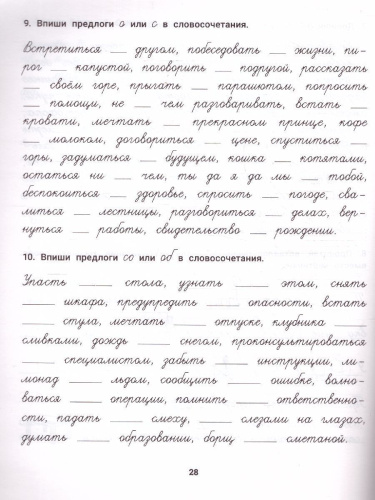 9. Впиши предлоги о или с в словосочетания.
Встретиться __ другом, побеседовать __ жизни, пи-
рог __ капустой, поговорить __ подругой, рассказать
__ своём горе, прыгать __ парашютом, попросить
__ помощи, не __ чем разговаривать, встать __
кровати, мечтать __ прекрасном принце, кофе
__ молоком, договориться __ цене, спуститься __
горы, задуматься __ будущем, кошка __ котятами,
остаться ни __ чем, ты да я да мы __ тобой,
беспокоиться __ здоровье, спросить __ погоде, сва-
литься __ лестницы, разговориться __ делах, вер-
нуться __ работы, свидетельство __ рождении.
10. Впиши предлоги со или об в словосочетания.
Упасть ____ стола, узнать ____ этом, снять
____ шкафа, предупредить ____ опасности, встать
____ стула, мечтать ____ отпуске, клубника ____
сливками, дождь ____ снегом, проконсультироваться
____ специалистом, забыть ____ инструкции, ли-
монад ____ льдом, сообщить ____ ошибке, волно-
ваться ____ операции, помнить ____ ответственно-
сти, падать ____ смеху, ____ слезами на глазах,
думать ____ образовании, борщ ____ сметаной.
28